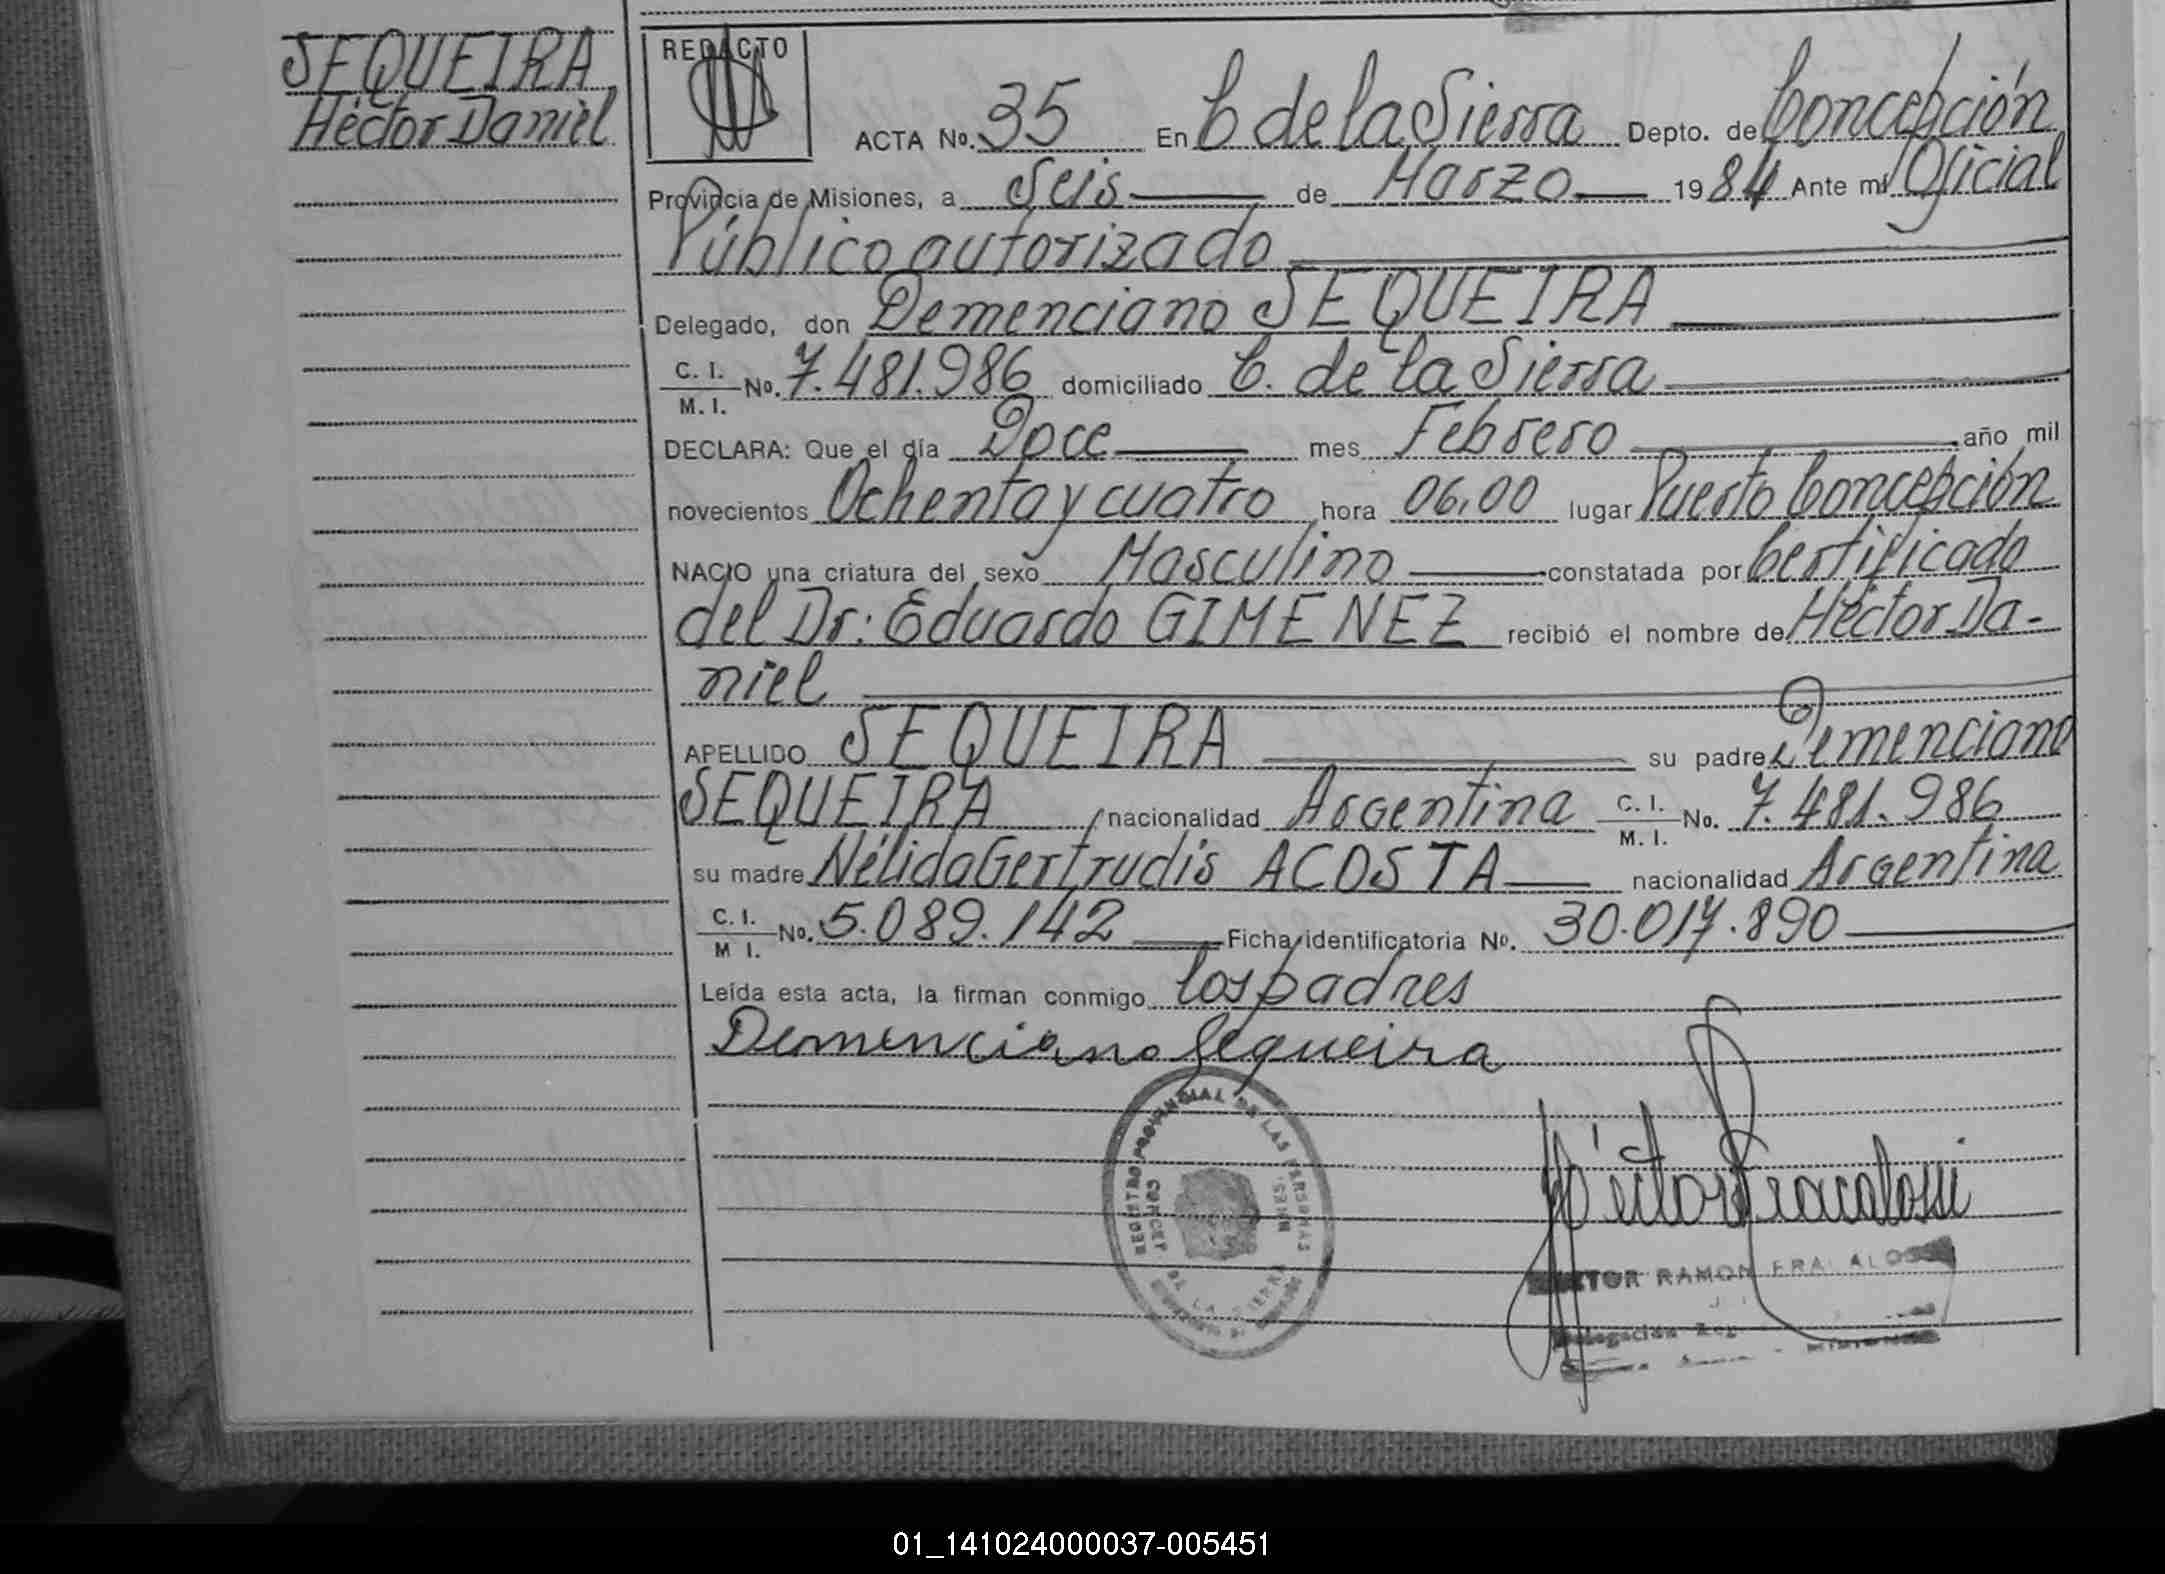 SEQUEIRA
Héctor Daniel
REDACTO
ACTA No. 35 En C de la Sierra Depto. de Concepción
Provincia de Misiones, a Seis de Marzo 1984 Ante mí Oficial
Público autorizado
Delegado, don Demenciano SEQUEIRA
C. I.
M. I. No. 7.481.986 domiciliado C. de la Sierra
DECLARA: Que el día Doce mes Febrero año mil
novecientos Ochenta y cuatro hora 06,00 lugar Puerto Concepción
NACIO una criatura del sexo Masculino constatada por Certificado
del Dr: Eduardo GIMENEZ recibió el nombre de Héctor Da-
niel
APELLIDO SEQUEIRA su padre Demenciano
SEQUEIRA nacionalidad Argentina C. I. M. I. No. 7.481.986
su madre Nélida Gertrudis ACOSTA nacionalidad Argentina
C. I. M I. No. 5.089.142 Ficha identificatoria No. 30.017.890
Leída esta acta, la firman conmigo los padres
Demenciano Sequeira
REGISTRO PROVINCIAL DE LAS PERSONAS
DE LA SIERRA
Héctor Fracalossi
RAMON
01_141024000037-005451